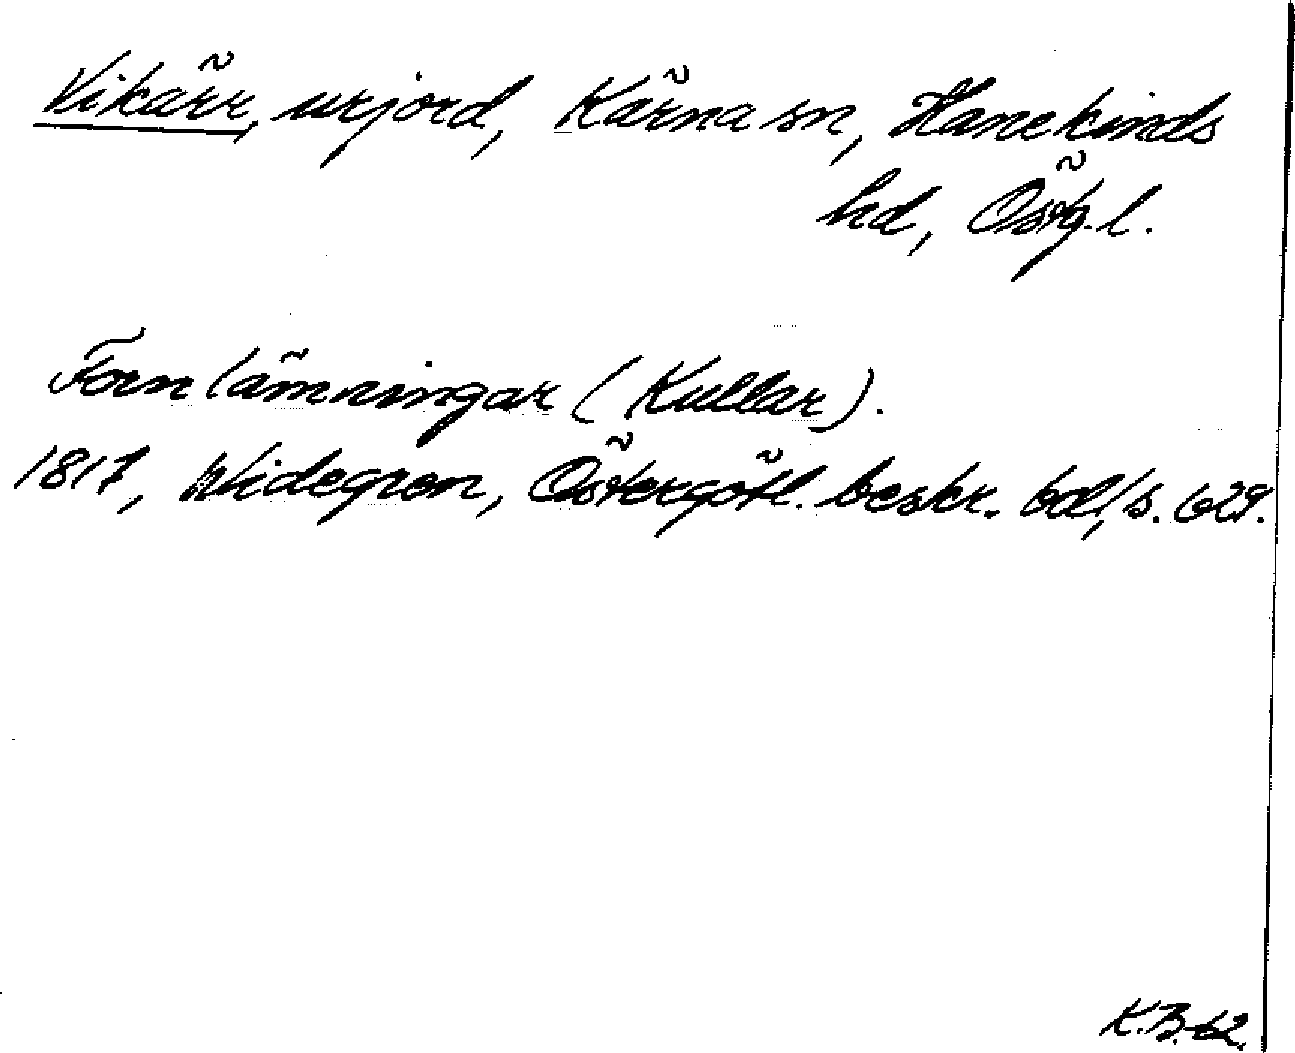 Vikärr, urjord, Kärna sn, Hanekinds
hd, Östg. l.
Fornlämningar (Kullar).
1817, Widegren, Östergötl. beskr. bd 1, s. 629.
K.B. 62.